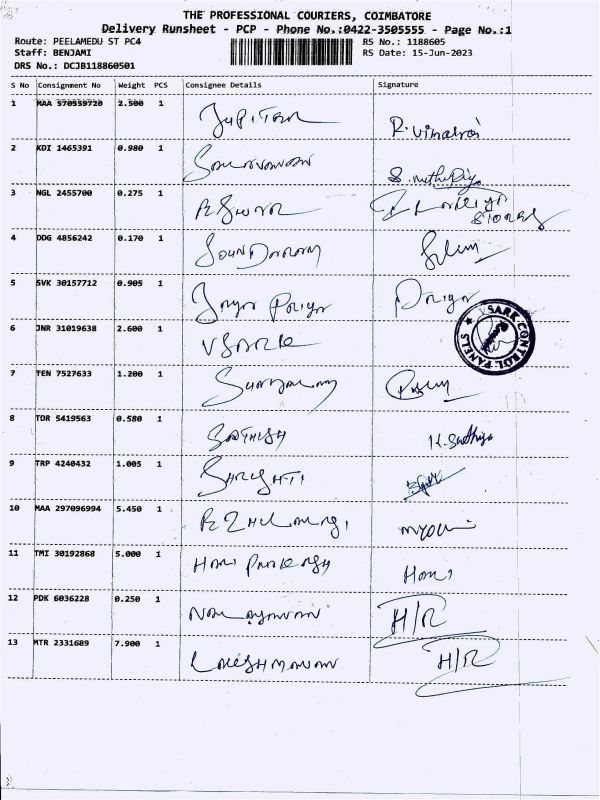 THE PROFESSIONAL COURIERS, COIMBATORE
Delivery Runsheet - PCP - Phone No.:0422-3505555 - Page No.:1
Route: PEELAMEDU ST PC4 RS No.: 1188605
Staff: BENJAMI RS Date: 15-Jun-2023
DRS No.: DCJB118860501
S No Consignment No Weight PCS Consignee Details Signature
1 MAA 570559720 2.500 1 JUPITER R. Vimalraj
2 KDI 1465391 0.980 1
3 NGL 2455700 0.275 1 ESWAR
4 DDG 4856242 0.170 1
5 SVK 30157712 0.905 1 Jaya Priya Priya
VSARK CONTROL PANELS
6 JNR 31019638 2.600 1 VSARK
7 TEN 7527633 1.200 1
8 TDR 5419563 0.580 1 SATHISH K. Sathiya
9 TRP 4240432 1.005 1
10 MAA 297096994 5.450 1
11 TMI 30192868 5.000 1 Hari Prakash Hari
12 PDK 6036228 0.250 1 H/R
13 MTR 2331689 7.900 1 H/R